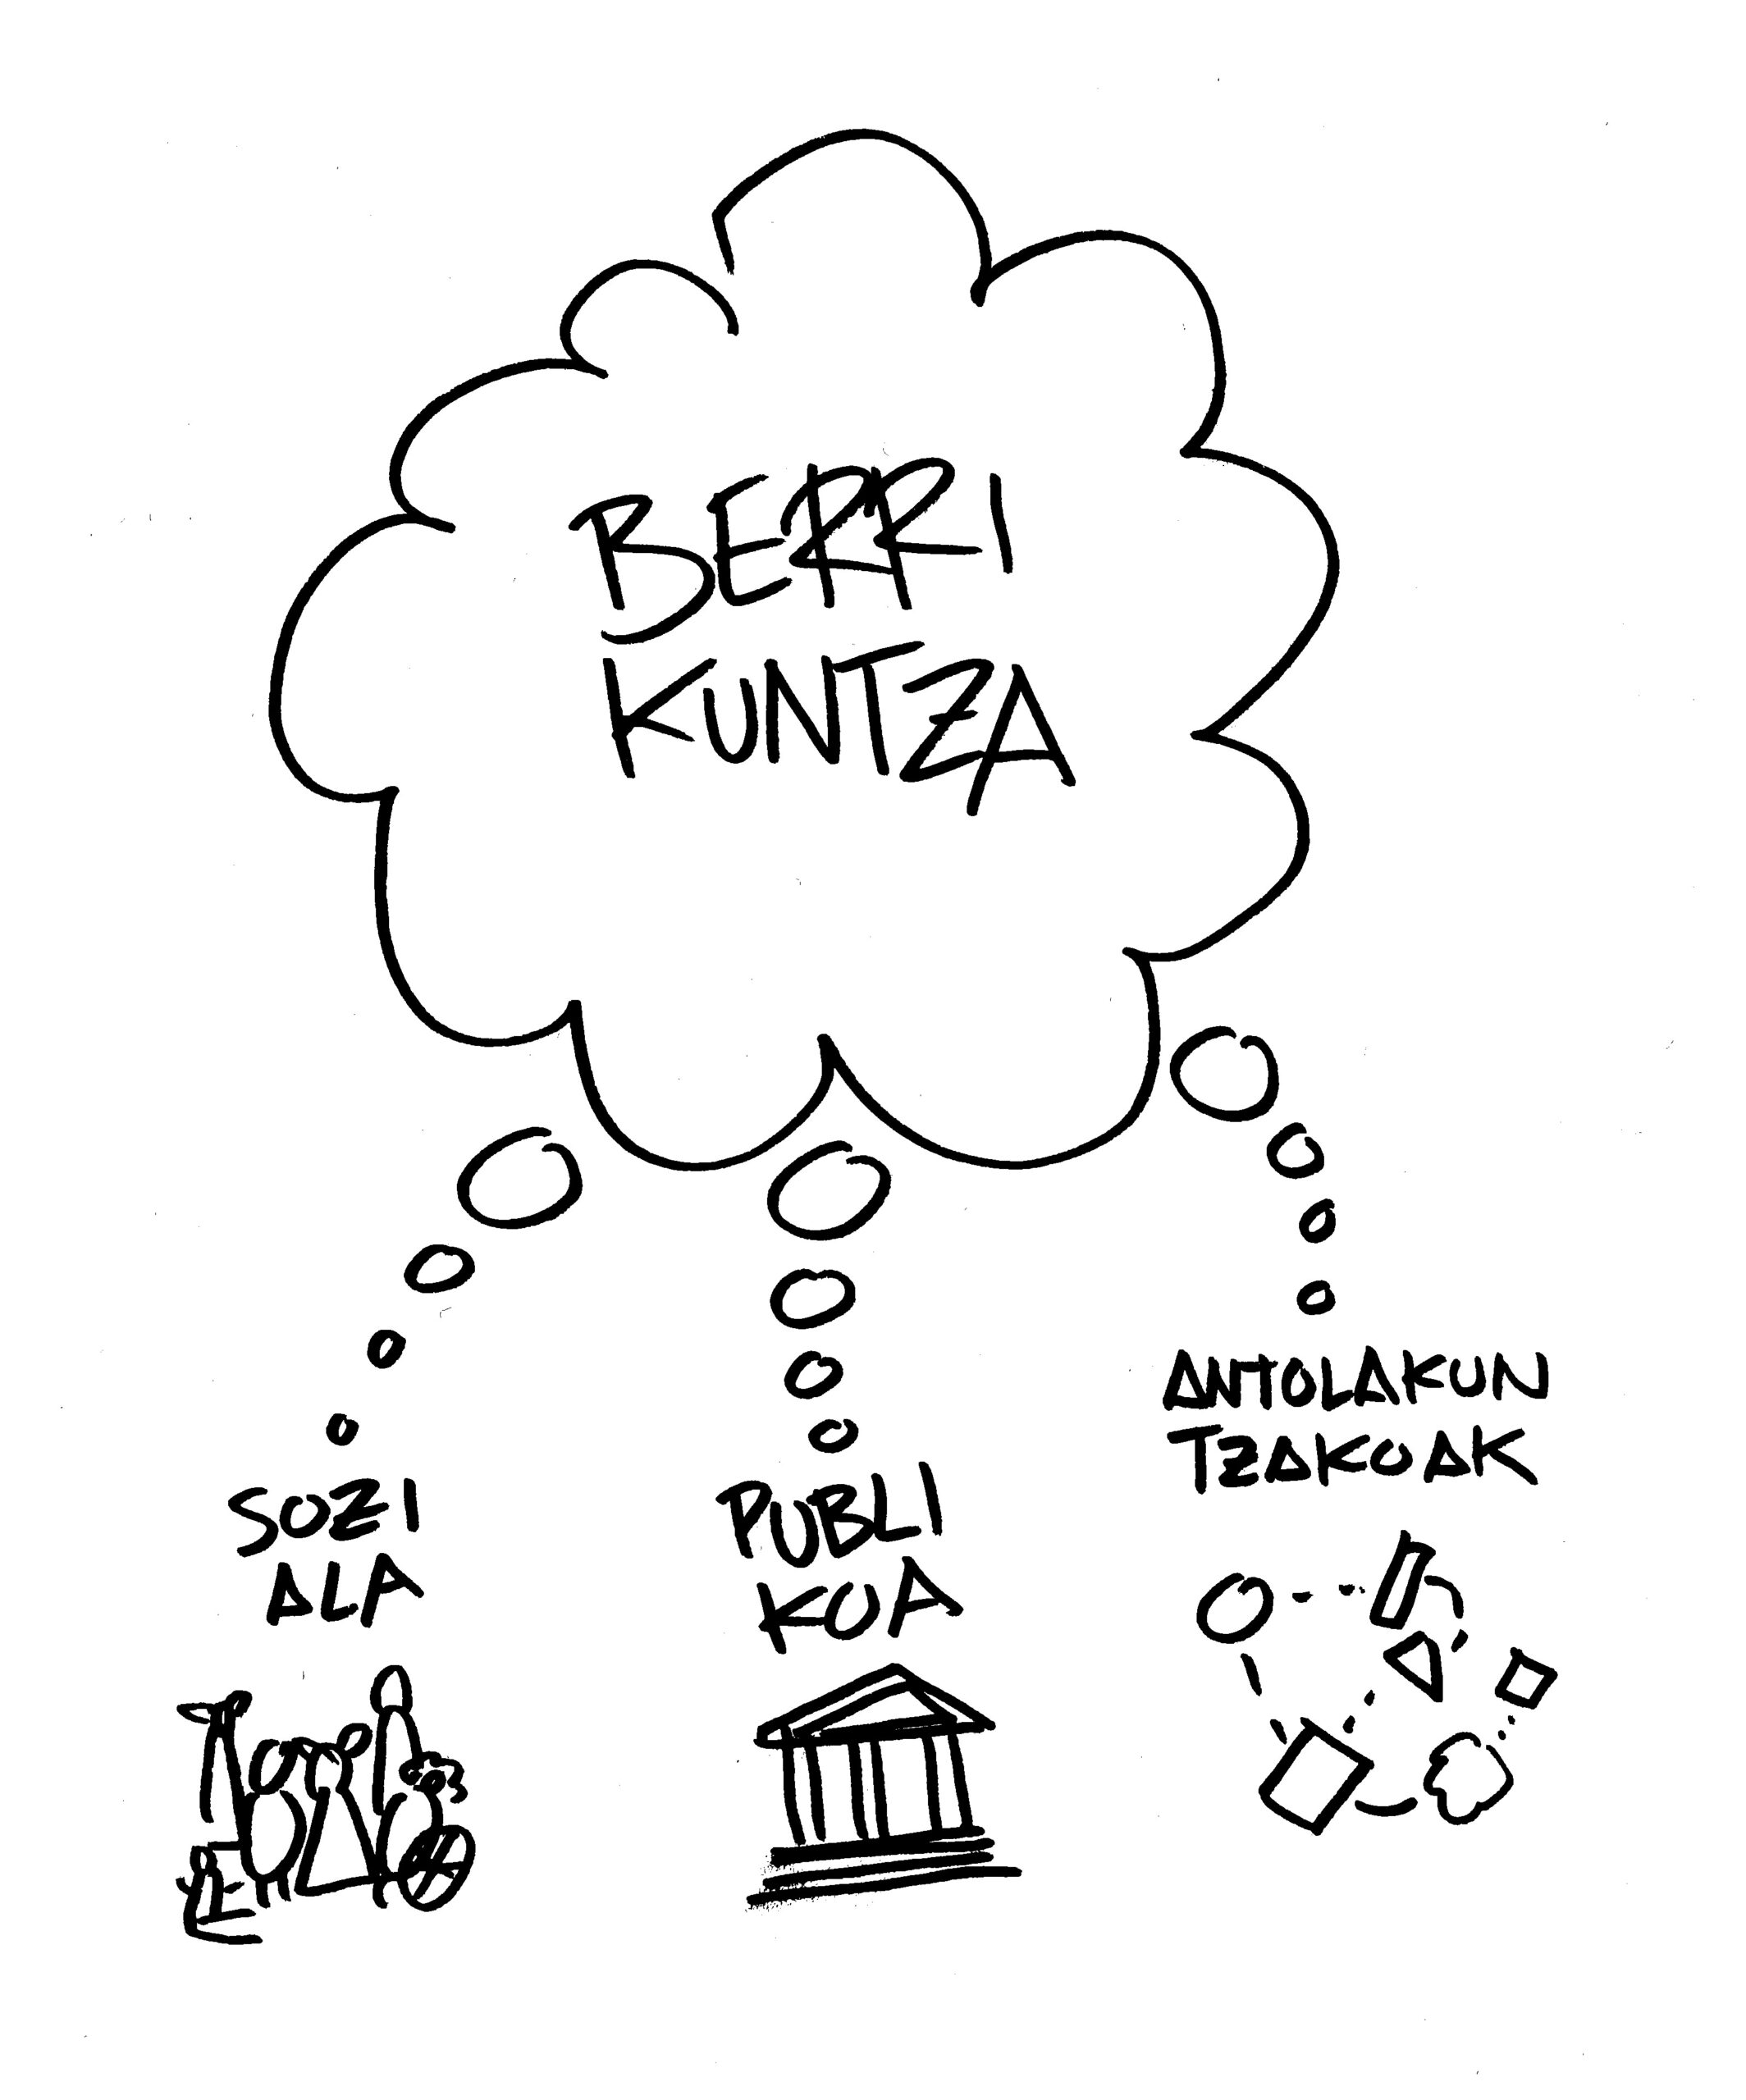 BERRI
KUNTZA
SOZI
ALA
PUBLI
KOA
ANTOLAKUN
TZAKOAK